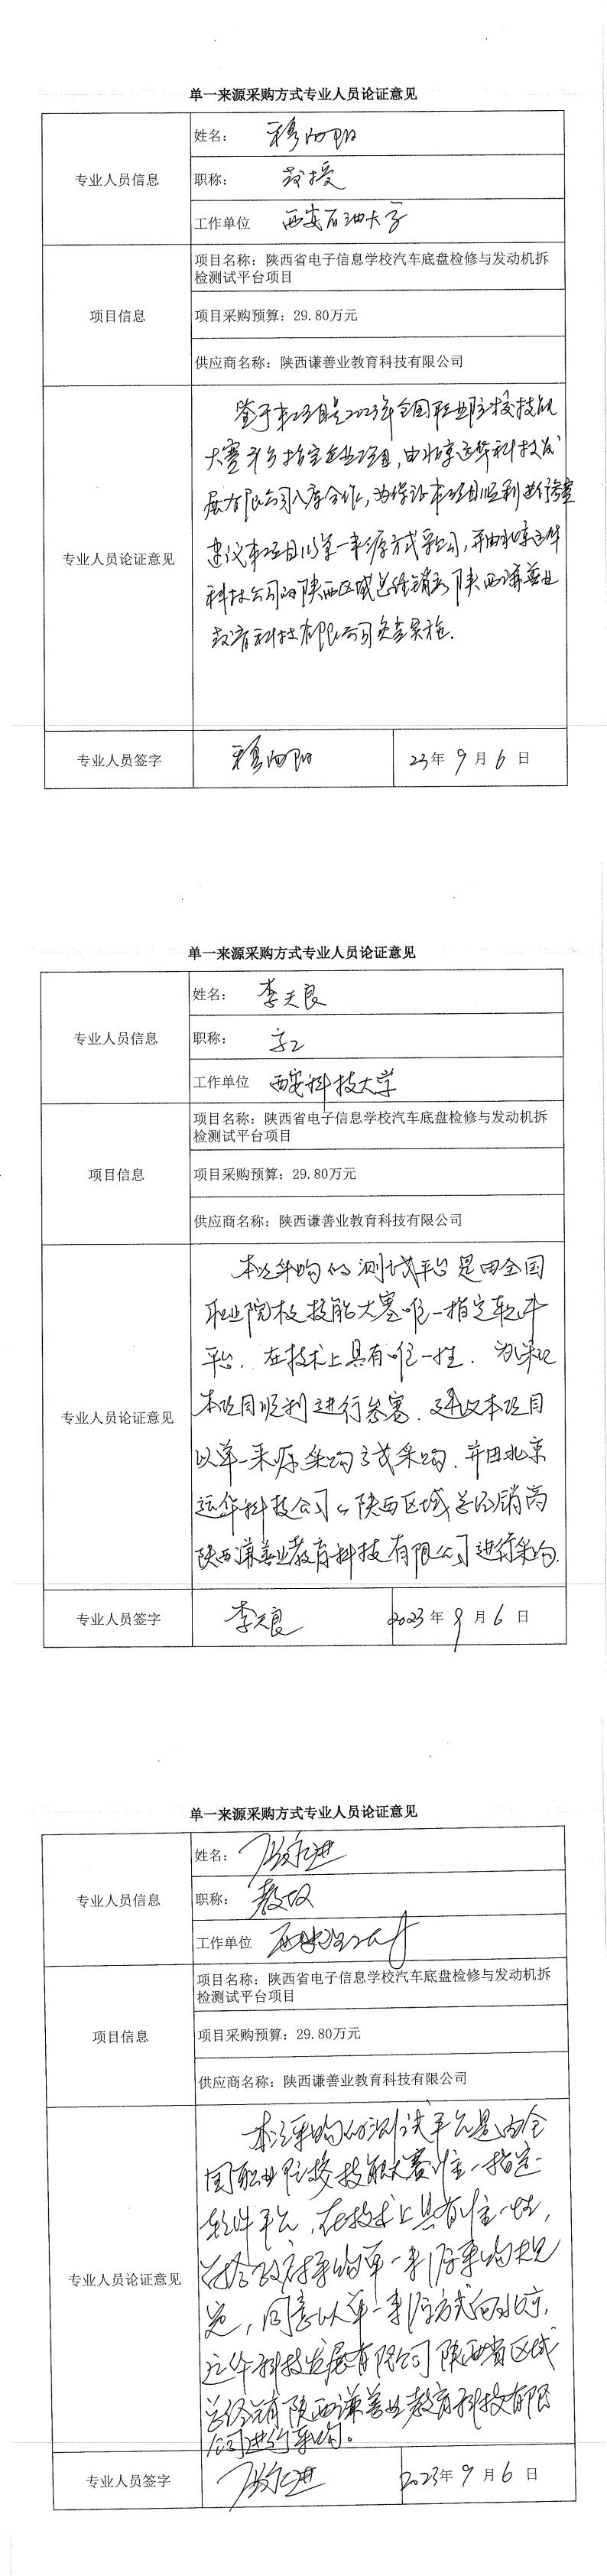 单一来源采购方式专业人员论证意见
专业人员信息
姓名：穆向阳
职称：教授
工作单位 西安石油大学
项目信息
项目名称：陕西省电子信息学校汽车底盘检修与发动机拆
检测试平台项目
项目采购预算：29.80万元
供应商名称：陕西谦善业教育科技有限公司
专业人员论证意见
鉴于本项目是2023年全国职业院校技能
大赛 指定企业项目，由北京运华科技发
展有限公司入库合作，为保证本项目顺利进行参赛
建议本项目以单一来源方式 ，并由北京运华
科技公司的陕西区域总经销商陕西谦善业
教育科技有限公司负责实施.
专业人员签字
穆向阳
23年9月6日
单一来源采购方式专业人员论证意见
专业人员信息
姓名：李天良
职称：高工
工作单位 西安科技大学
项目信息
项目名称：陕西省电子信息学校汽车底盘检修与发动机拆
检测试平台项目
项目采购预算：29.80万元
供应商名称：陕西谦善业教育科技有限公司
专业人员论证意见
本次采购的测试平台是由全国
职业院校技能大赛唯一指定软件
平台，在技术上具有唯一性．为保证
本项目顺利进行参赛．建议本项目
以单一来源采购方式采购．并由北京
运华科技公司的陕西区域总经销商
陕西谦善业教育科技有限公司进行采购.
专业人员签字
李天良
2023年9月6日
单一来源采购方式专业人员论证意见
专业人员信息
姓名：
职称：教授
工作单位
项目信息
项目名称：陕西省电子信息学校汽车底盘检修与发动机拆
检测试平台项目
项目采购预算：29.80万元
供应商名称：陕西谦善业教育科技有限公司
专业人员论证意见
本次采购的测试平台是由全
国职业院校技能大赛唯一指定
软件平台，在技术上具有唯一性，
符合政府采购单一来源采购规
定，同意以单一来源方式向北京
运华科技发展有限公司陕西省区域
总经销商陕西谦善业教育科技有限
公司进行采购。
专业人员签字
2023年9月6日